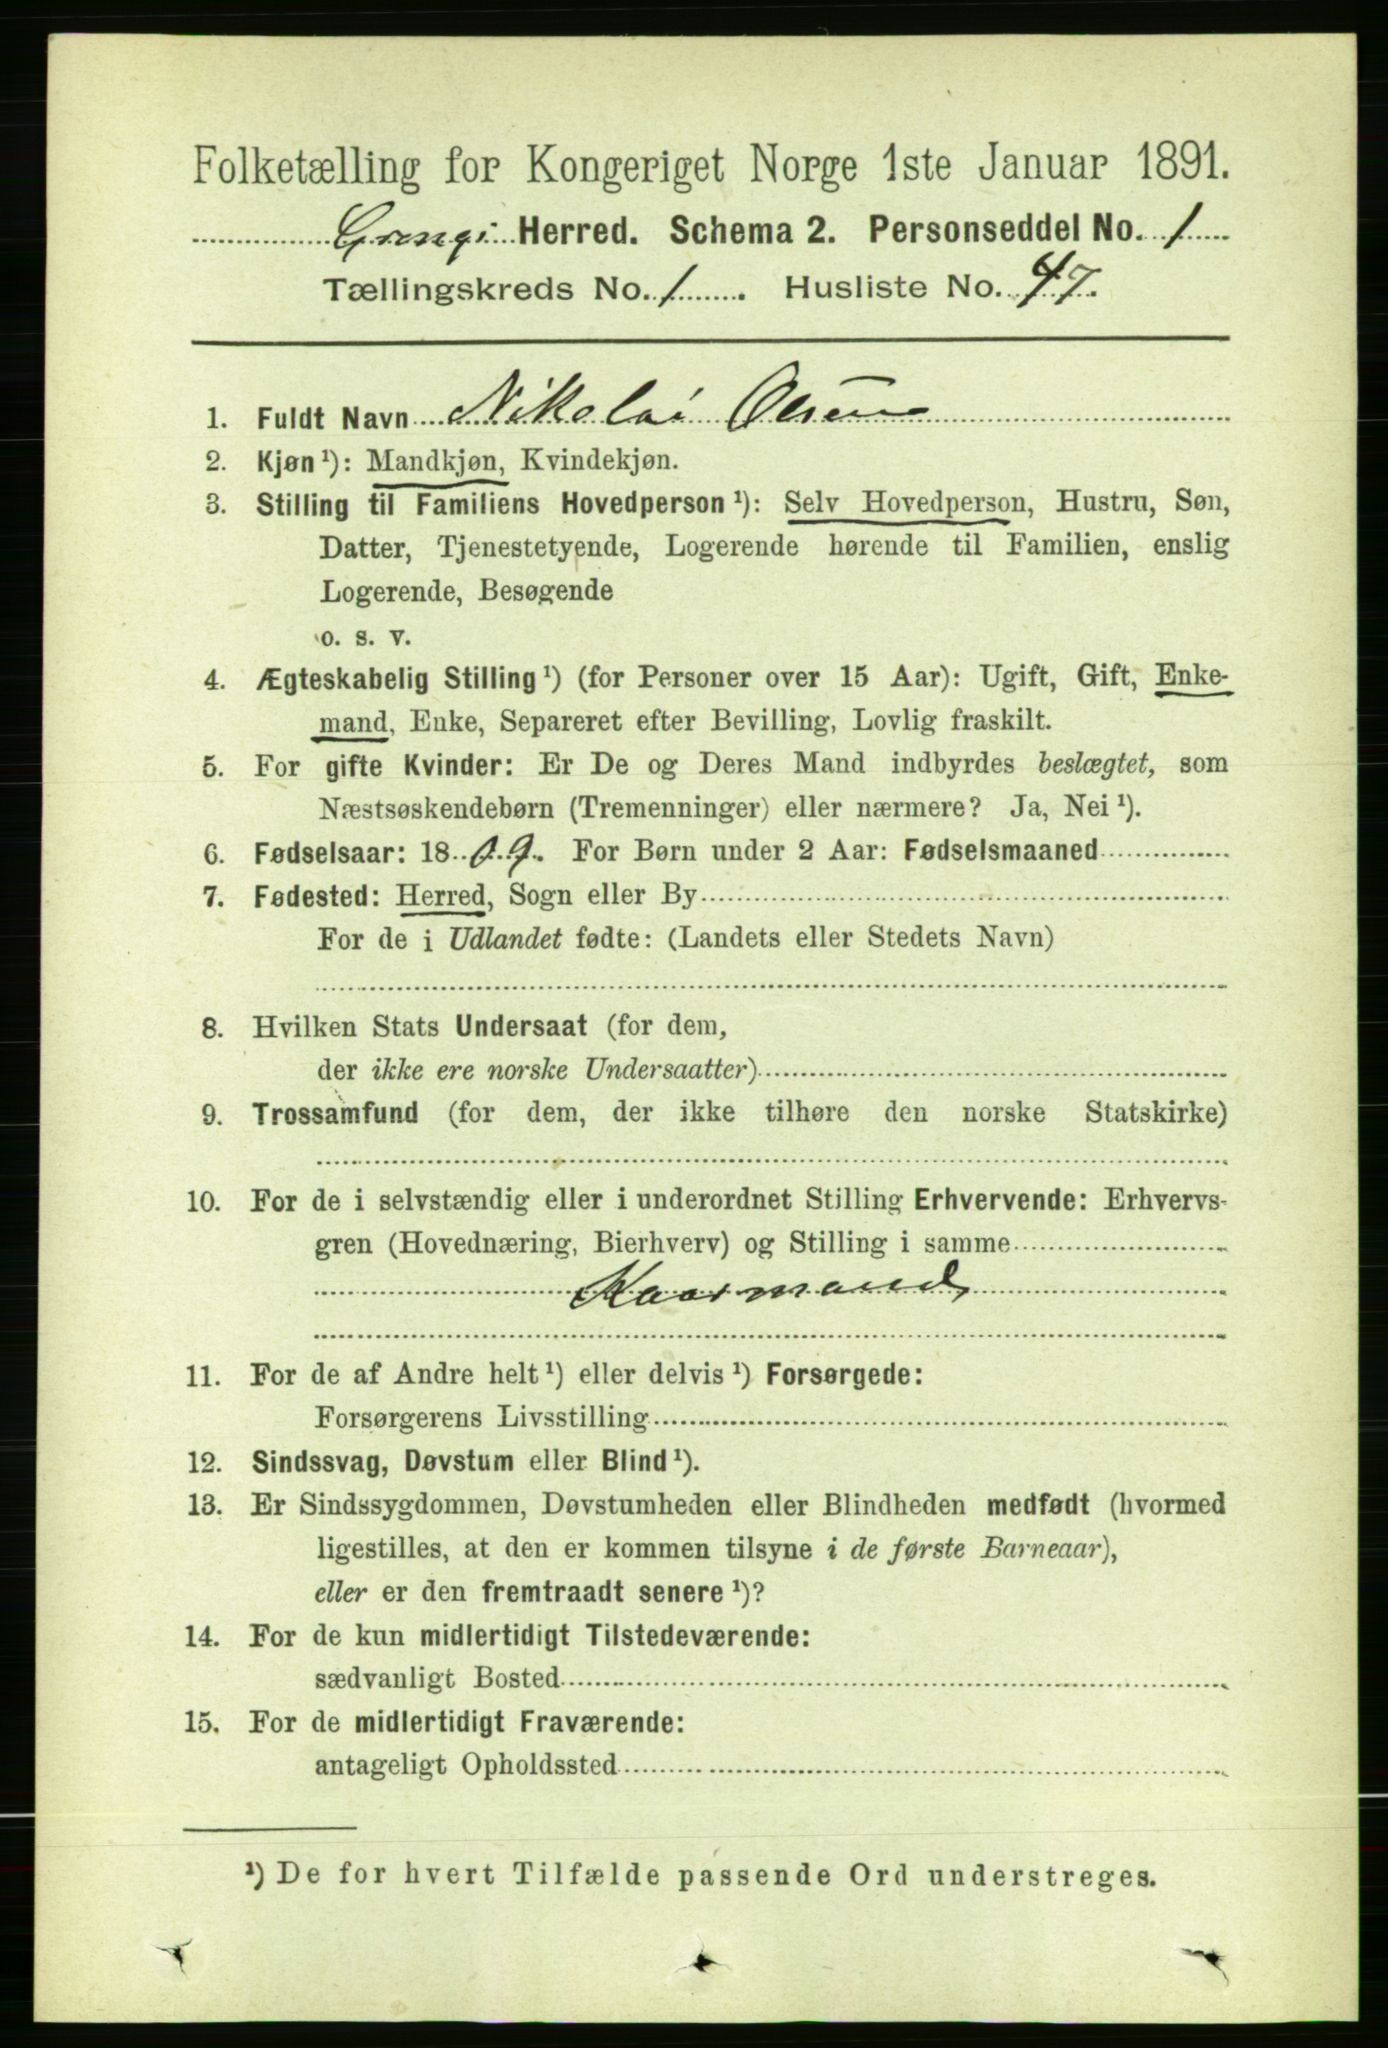 Folketælling for Kongeriget Norge 1ste Januar 1891.
Herred. Schema 2. Personseddel No. 1
Tællingskreds No. 1. Husliste No. 47.
1. Fuldt Navn Nikolai Olsen
2. Kjøn ¹): Mandkjøn, Kvindekjøn.
3. Stilling til Familiens Hovedperson ¹): Selv Hovedperson, Hustru, Søn,
Datter, Tjenestetyende, Logerende hørende til Familien, enslig
Logerende, Besøgende
o. s. v.
4. Ægteskabelig Stilling ¹) (for Personer over 15 Aar): Ugift, Gift, Enke-
mand, Enke, Separeret efter Bevilling, Lovlig fraskilt.
5. For gifte Kvinder: Er De og Deres Mand indbyrdes beslægtet, som
Næstsøskendebørn (Tremenninger) eller nærmere? Ja, Nei ¹).
6. Fødselsaar: 1809. For Børn under 2 Aar: Fødselsmaaned
7. Fødested: Herred, Sogn eller By
For de i Udlandet fødte: (Landets eller Stedets Navn)
8. Hvilken Stats Undersaat (for dem,
der ikke ere norske Undersaatter)
9. Trossamfund (for dem, der ikke tilhøre den norske Statskirke)
10. For de i selvstændig eller i underordnet Stilling Erhvervende: Erhvervs-
gren (Hovednæring, Bierhverv) og Stilling i samme
Kaarmand
11. For de af Andre helt ¹) eller delvis ¹) Forsørgede:
Forsørgerens Livsstilling
12. Sindssvag, Døvstum eller Blind ¹).
13. Er Sindssygdommen, Døvstumheden eller Blindheden medfødt (hvormed
ligestilles, at den er kommen tilsyne i de første Barneaar),
eller er den fremtraadt senere ¹)?
14. For de kun midlertidigt Tilstedeværende:
sædvanligt Bosted
15. For de midlertidigt Fraværende:
antageligt Opholdssted
¹) De for hvert Tilfælde passende Ord understreges.